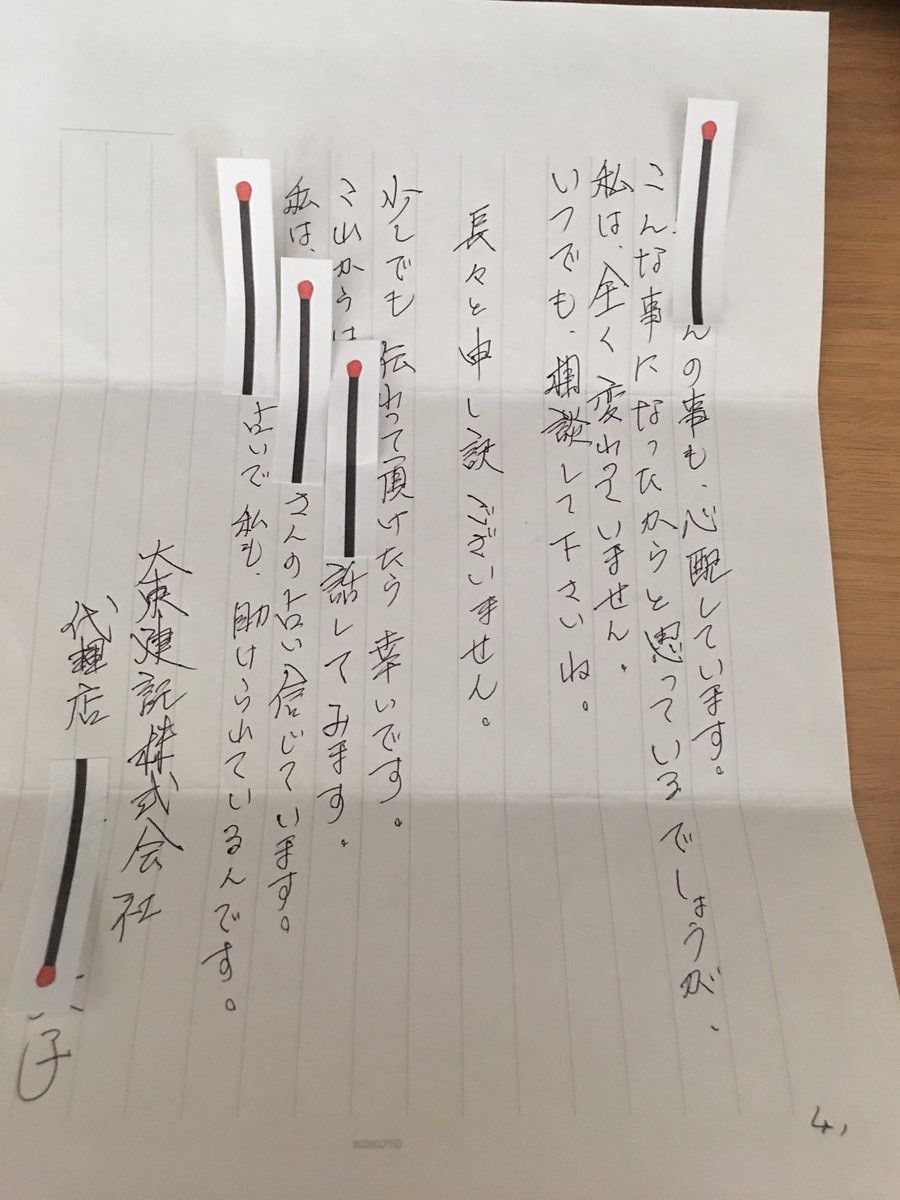 んの事も、心配しています。
こんな事になったからと思っているでしょうが、
私は、全く変わっていません。
いつでも、相談して下さいね。
長々と申し訳ございません。
少しでも伝わって頂けたら幸いです。
これからは 話してみます。
私は、 さんの占い信じています。
占いで私も、助けられているんです。
大東建託株式会社
代理店
子
4,